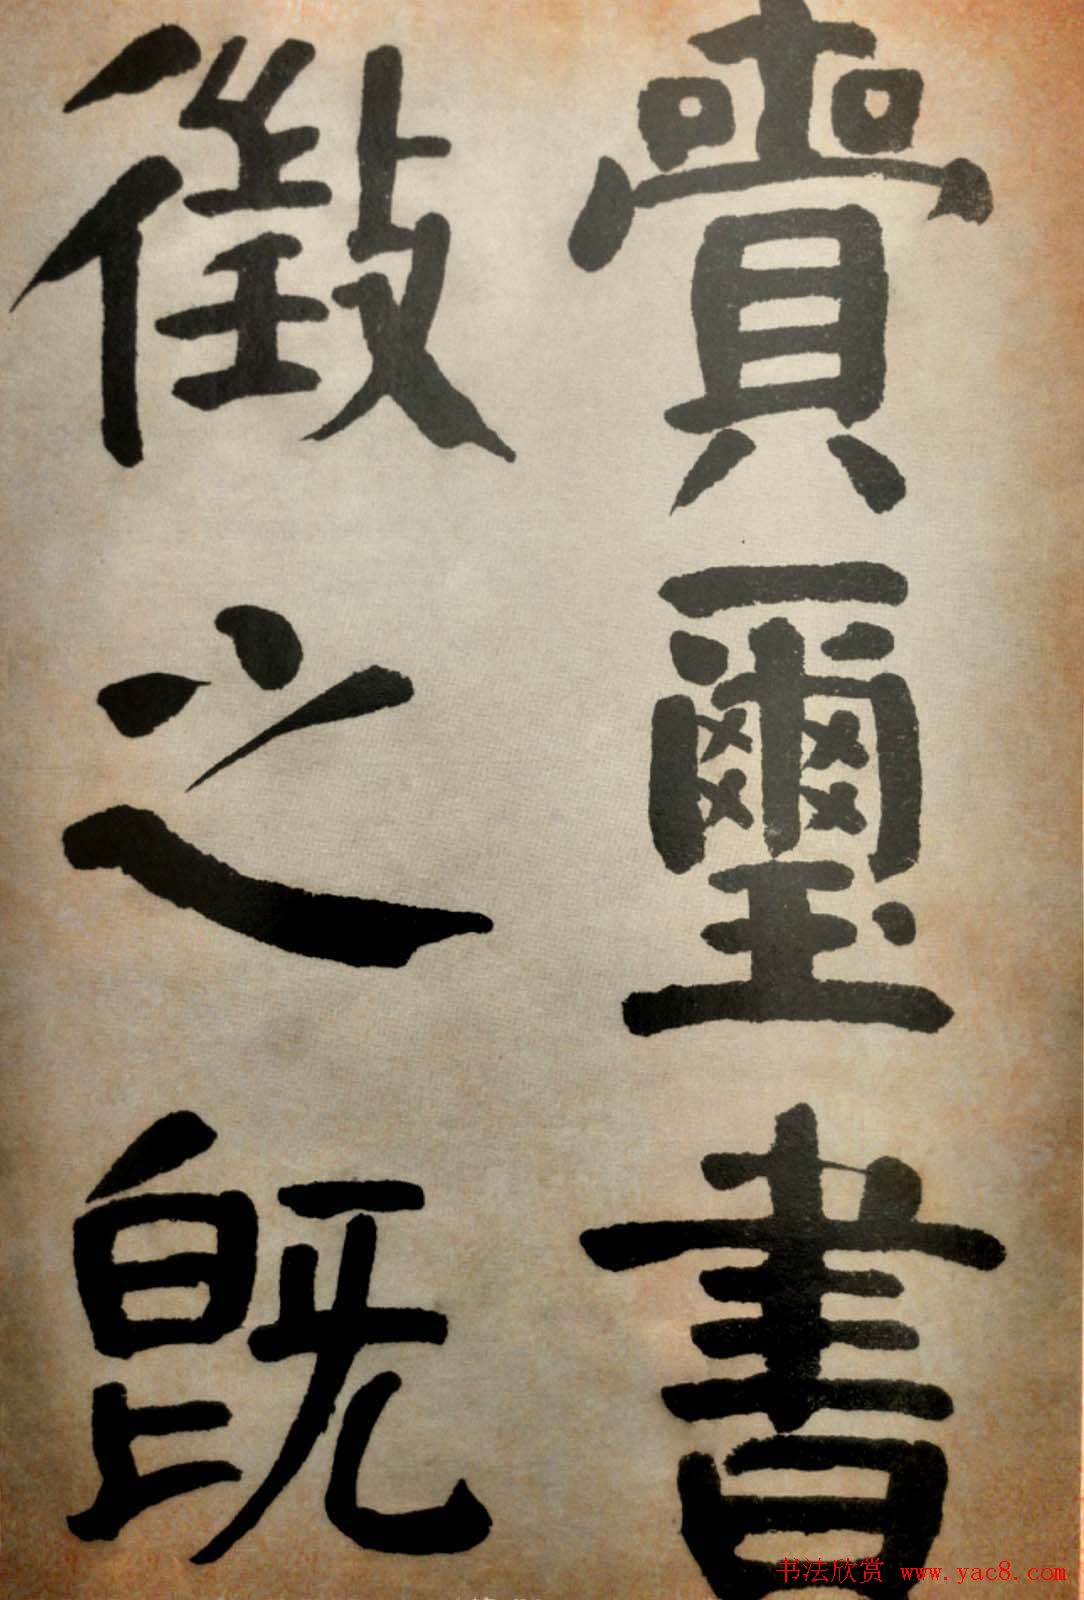 賷璽書
徵之既
书法欣赏 www.yac8.com